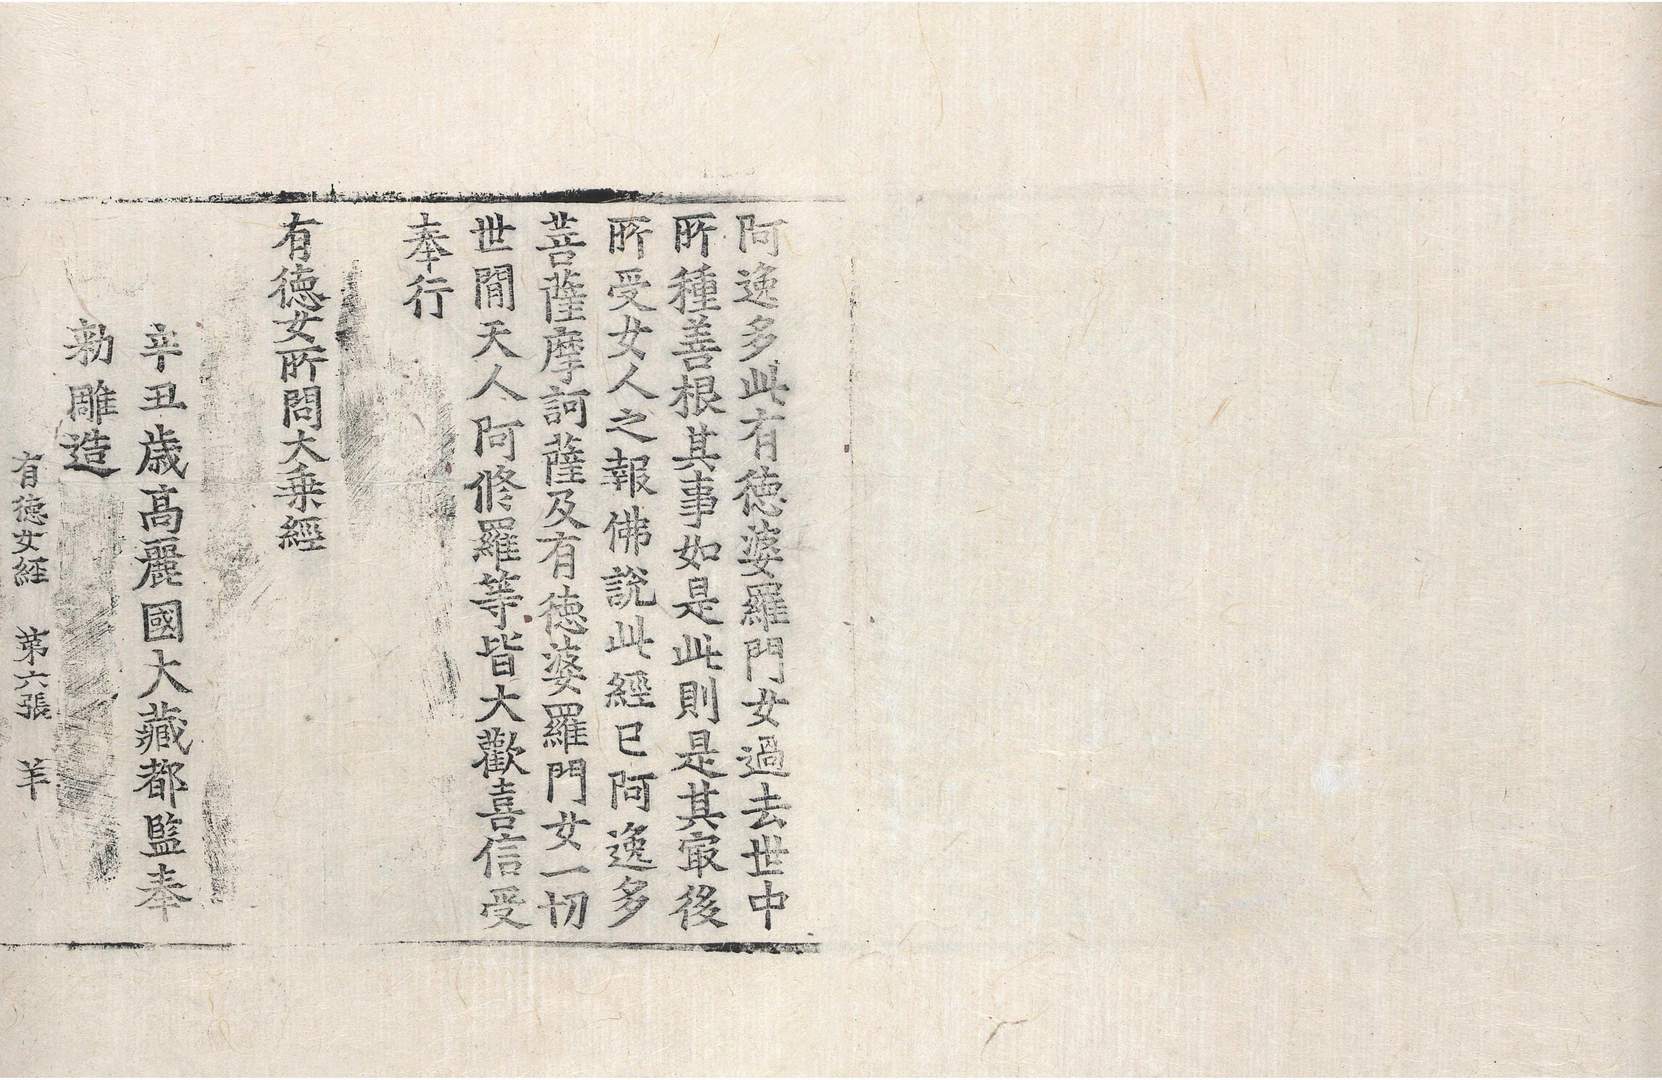 阿逸多此有德婆羅門女過去世中
所種善根其事如是此則是其㝡後
所受女人之報佛說此經已阿逸多
菩薩摩訶薩及有德婆羅門女一切
世間天人阿修羅等皆大歡喜信受
奉行
有德女所問大乗經
辛丑歲高麗國大藏都監奉
勑雕造
有德女経 第六張 羊